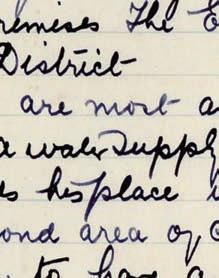 remises The E
District
are most a
a water supply
es his place i
ond area of
to have a